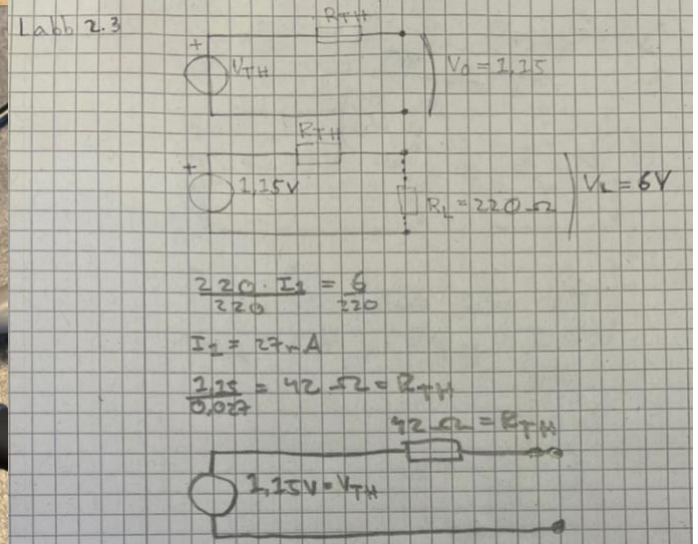 Labb 2.3
RTH
+
VTH
V0 = 1,15
RTH
+
1,15V
RL = 220 Ω
VL = 6V
220 · I1 = 6
220 220
I1 = 27mA
1,15 = 42 Ω = RTH
0,027
42 Ω = RTH
1,15V = VTH